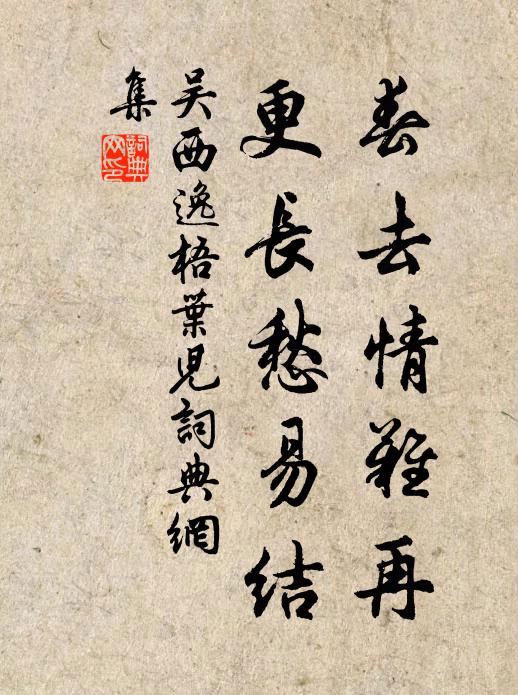 春去情難再
更長愁易結
吳西逸梧葉兒詞典網
集
詞典網印